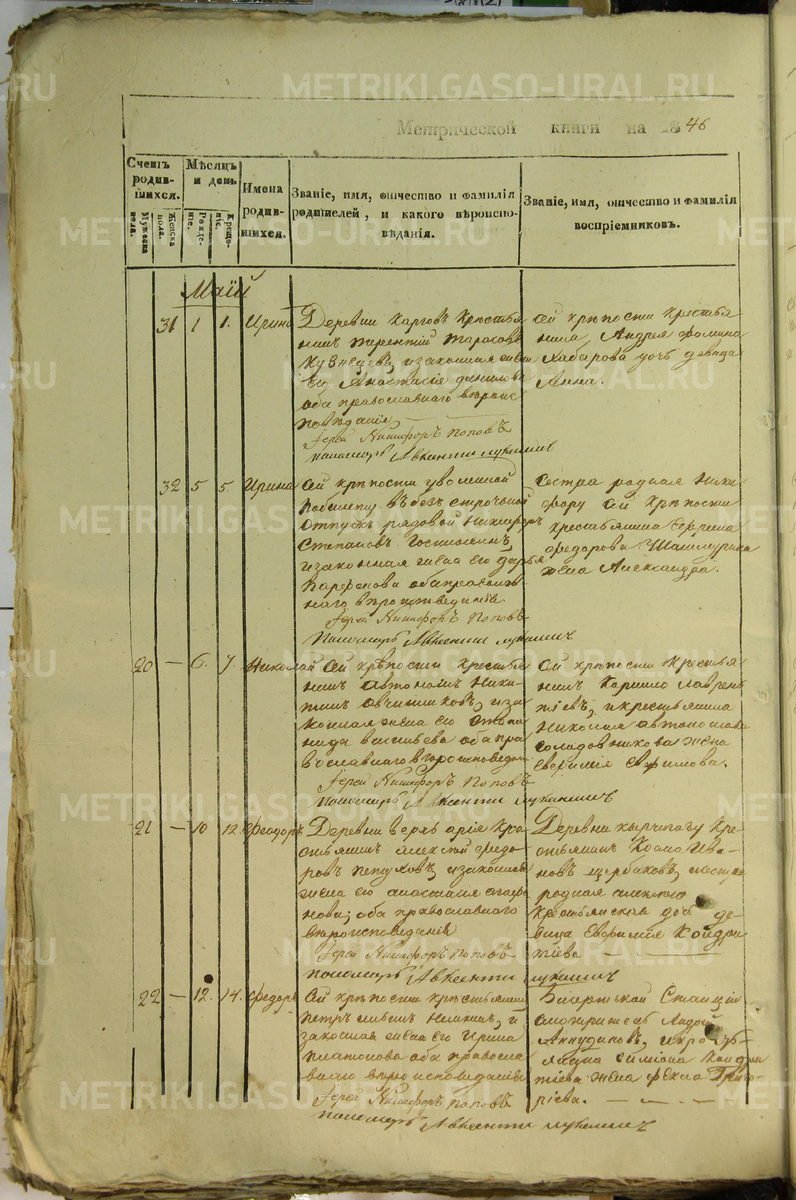 METRIKI.GASO-URAL.RU
Метрической книги на 1846
Счетъ родив-шихся.
Мужеска пола.
Женска пола.
Мѣсяцъ и день
Рожде-нія.
Креще-нія.
Имена родив-шихся.
Званіе, имя, отчество и фамилія родителей, и какого вѣроиспо-вѣданія.
Званіе, имя, отчество и фамилія воспріемниковъ.
Май
31 1 1. Ирина
Деревни Каргов Крестья
нинъ Терентій Тарасовъ
Кузнецовъ, и законная жена
его Анастасія Данилова
оба православнаго вѣроис
повѣданія
Іерей Никифоръ Поповъ
Пономарь Авксентій
Сей крѣпости крестья
нина, Андрея Фомина
Хабарова дочь девица
Анна.
32 5 5. Ирина
Сей крѣпости уволенной
по билету въ безсрочной
отпускъ рядовой Никифоръ
Степановъ
и законная жена его Дарья
Парфенова оба православ
наго вѣроисповеданія
Іерей Никифоръ Поповъ
Пономарь Авксентій
Сестра родная Ники
фору Сей крѣпости
крестьянина Ефрема
Федорова
жена Александра.
20 — 6. 7. Николай
Сей крѣпости крестья
нинъ Автономъ Ники
тинъ Овчинниковъ, и за
конная жена его Степа
нида Васильева оба пра
вославнаго вѣроисповедан
Іерей Никифоръ Поповъ
Пономарь Авксентій
Сей крѣпости крестья
нинъ Корнило Лаврен
тіевъ, и крестьянина
Николая Автономова
Солодовникова жена
Евфимія Ефимова.
21 — 10 12. Феодоръ
Деревни Верхъ Арія Кре
стьянинъ Алексѣй Федо
ровъ Петуховъ, и законная
жена его Анастасія Агафо
нова; оба православнаго
вѣроисповеданія
Іерей Никифоръ Поповъ
Пономарь Авксентій
Деревни Кре
стьянинъ Козма Ива
новъ Щербаковъ,
родная
крестьянская дочь де
вица Евфимія Кондра
тіева
22 — 12. 14. Федоръ
Сей крѣпости крестьянинъ
Петръ и
законная жена его Ирина
Платонова оба правосла
внаго вѣроисповеданія
Іерей Никифоръ Поповъ
Пономарь Авксентій
Станціи
смотритель
и кресть
янина Симіона Кондра
тіева жена Фекла Григо
ріева.